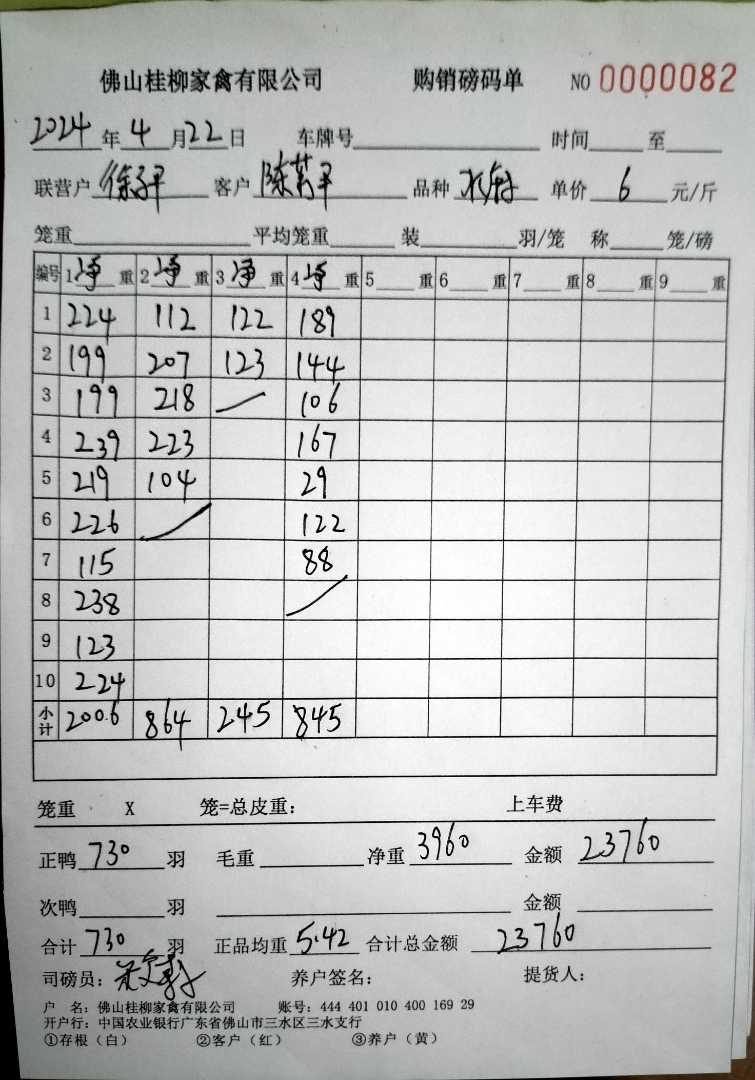 佛山桂柳家禽有限公司 购销磅码单 NO 0000082
2024 年 4 月 22 日 车牌号 时间 至
联营户 徐子平 客户 陈 平 品种 单价 6 元/斤
笼重 平均笼重 装 羽/笼 称 笼/磅
编号 1 净 重 2 净 重 3 净 重 4 净 重 5 重 6 重 7 重 8 重 9 重
1 224 112 122 189
2 199 207 123 144
3 199 218 106
4 239 223 167
5 219 104 29
6 226 122
7 115 88
8 238
9 123
10 224
小计 200.6 864 245 845
笼重 X 笼=总皮重： 上车费
正鸭 730 羽 毛重 净重 3960 金额 23760
次鸭 羽 金额
合计 730 羽 正品均重 5.42 合计总金额 23760
司磅员： 养户签名： 提货人：
户 名：佛山桂柳家禽有限公司 账号：444 401 010 400 169 29
开户行：中国农业银行广东省佛山市三水区三水支行
①存根（白） ②客户（红） ③养户（黄）